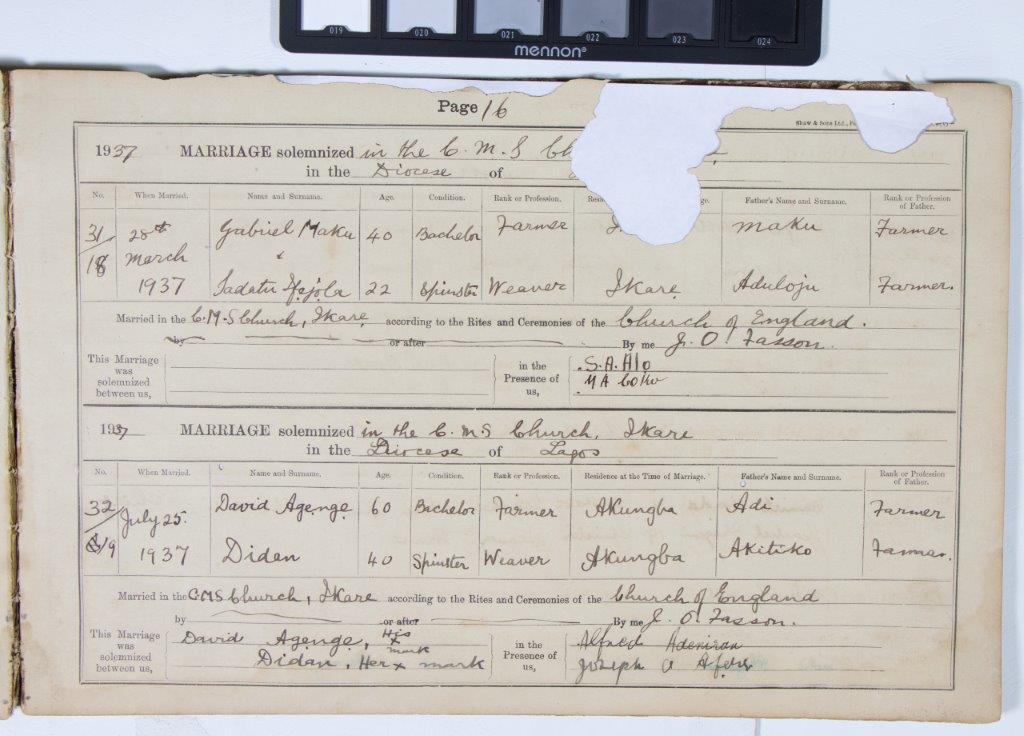 019 020 021 022 023 024
mennon®
Page 16
Shaw & Sons Ltd.,
1937 MARRIAGE solemnized in the C. M. S
in the Diocese of
No. When Married. Name and Surname. Age. Condition. Rank or Profession. Father's Name and Surname. Rank or Profession of Father.
31/18 28th March 1937 Gabriel Maku 40 Bachelor Farmer Maku Farmer
Sadatu Ifejola 22 Spinster Weaver Ikare Aduloju Farmer.
Married in the C.M.S Church, Ikare according to the Rites and Ceremonies of the Church of England.
by or after By me J. O. Fasson.
This Marriage was solemnized between us, in the Presence of us, S. A. Alo
M A Coker
1937 MARRIAGE solemnized in the C. M S Church, Ikare
in the Diocese of Lagos
No. When Married. Name and Surname. Age. Condition. Rank or Profession. Residence at the Time of Marriage. Father's Name and Surname. Rank or Profession of Father.
32/19 July 25. 1937 David Agenge 60 Bachelor Farmer Akungba Adi Farmer
Didan 40 Spinster Weaver Akungba Akitiko Farmer.
Married in the CMS Church, Ikare according to the Rites and Ceremonies of the Church of England
by or after By me J. O. Fasson.
This Marriage was solemnized between us, David Agenge, His x mark in the Presence of us, Alfred Adeniran
Didan, Her x mark Joseph A